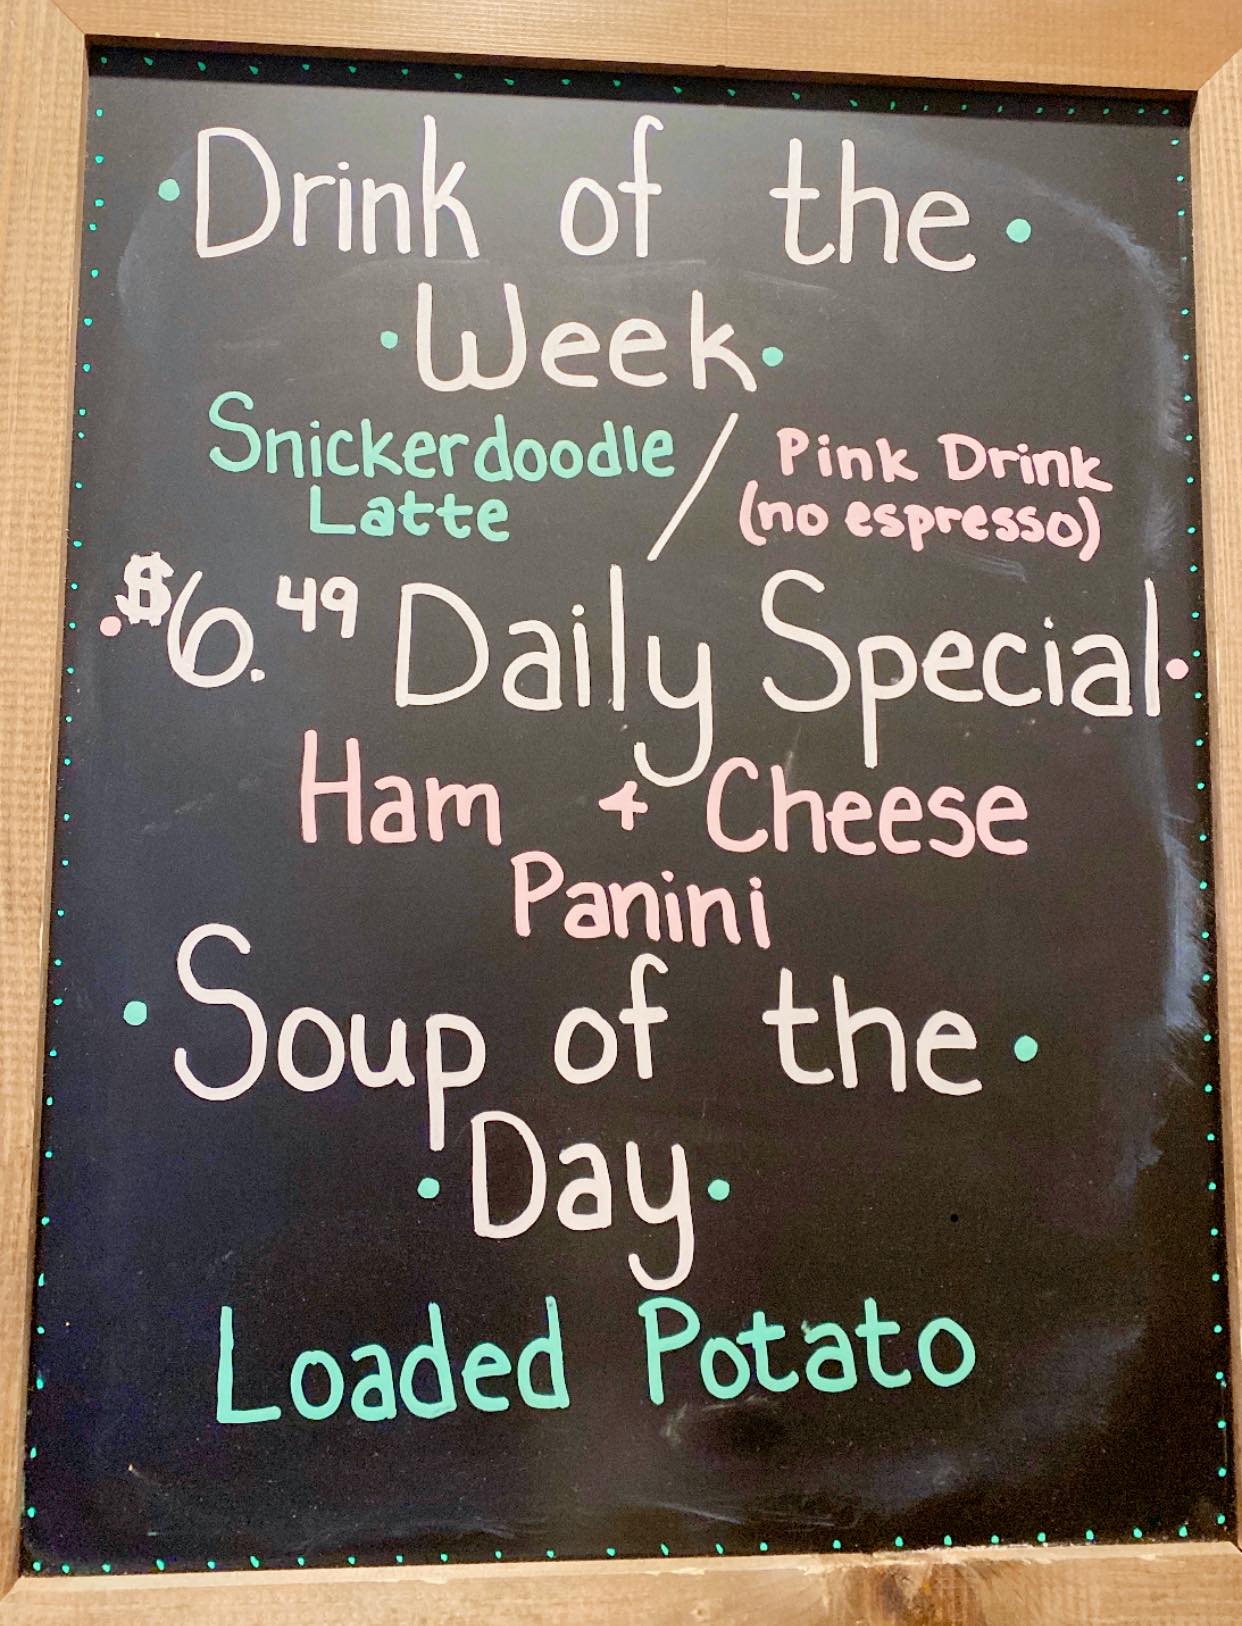 Drink of the
Week
Snickerdoodle / Pink Drink
Latte (no espresso)
$6.49 Daily Special
Ham + Cheese
Panini
Soup of the
Day
Loaded Potato